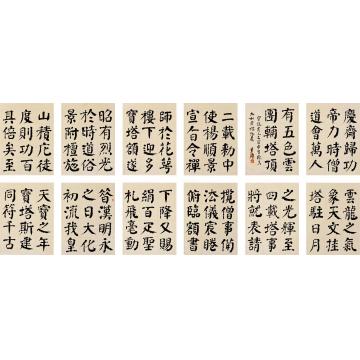 昔漢明永
之日大化
初流我皇
天寶之年
寶塔斯建
同符千古
昭有烈光
於時道俗
景附檀施
山積庀徒
度則功百
其倍矣至
二載勅中
使楊順景
宣旨令禪
師於花萼
樓下迎多
寶塔額遂
攬僧事備
法儀宸眷
俯臨額書
下降又賜
絹百疋聖
札飛毫動
雲龍之氣
象天文挂
塔駐日月
之光輝至
四載塔事
將就表請
慶齋歸功
帝力時僧
道會萬人
有五色雲
團輔塔頂